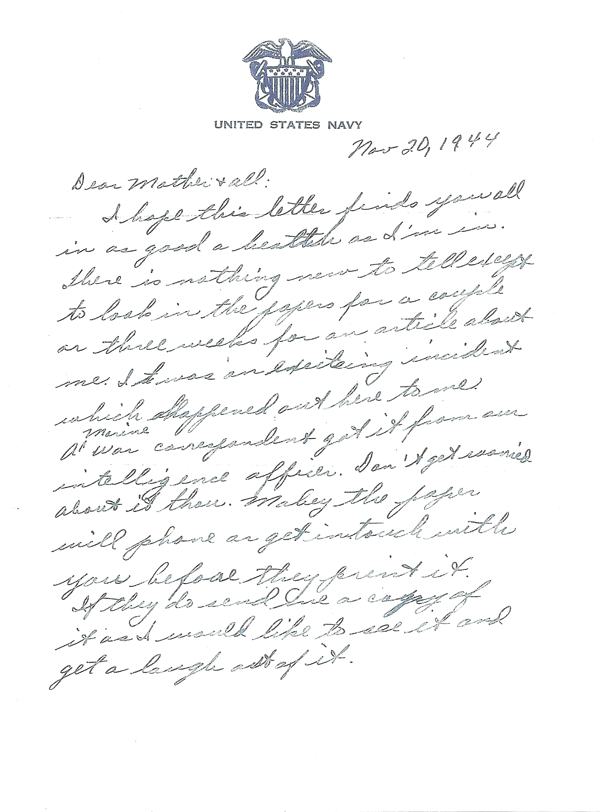 UNITED STATES NAVY
Nov 20, 1944
Dear Mother & all:
I hope this letter finds you all
in as good a health as I'm in.
There is nothing new to tell except
to look in the papers for a couple
or three weeks for an article about
me. It was an exciteing incident
which happened out here to me.
Marine
A war correspondent got it from our
intelligence officer. Don't get worried
about it thou. Mabey the paper
will phone or get in touch with
you before they print it.
If they do send me a copy of
it as I would like to see it and
get a laugh out of it.